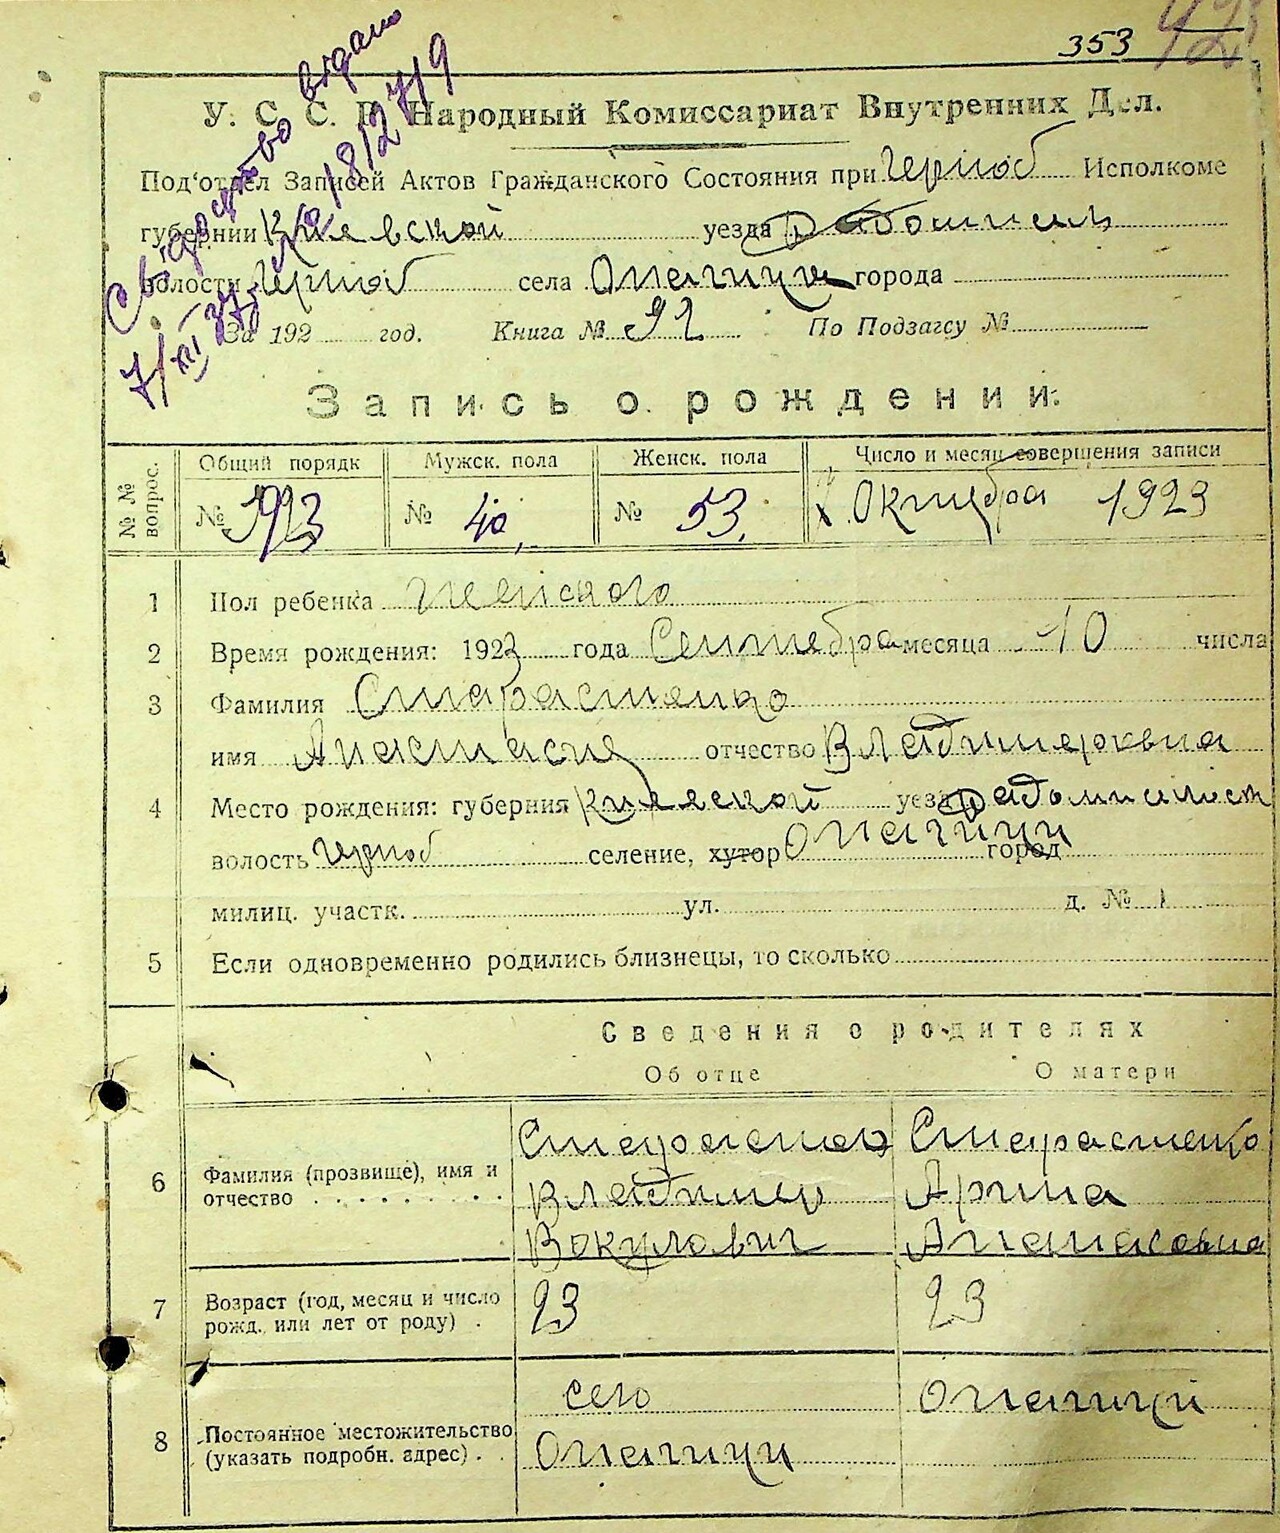 353
Свідоцтво видано
7/XII 37 № 18/2 7/9
У. С. С. Р. Народный Комиссариат Внутренних Дел.
Под'отдел Записей Актов Гражданского Состояния при Черноб Исполкоме
губернии Киевской уезда Радомысль
волости Черноб села Опачичи города
За 192 год. Книга № 92 По Подзагсу №
Запись о рождении.
№ № вопрос. Общий порядк Мужск. пола Женск. пола Число и месяц совершения записи
№ 93 № 40 № 53 Октября 1923
1 Пол ребенка женского
2 Время рождения: 1923 года Сентебра месяца 10 числа
3 Фамилия Старастенко
имя Анастасия отчество Владимеровна
4 Место рождения: губерния Киевской уезд Радомисльск
волость Черноб селение, хутор Опачичи город
милиц. участк. ул. д. № 1
5 Если одновременно родились близнецы, то сколько
Сведения о родителях
Об отце О матери
6 Фамилия (прозвище), имя и отчество Старастенко Старастенко
Владимер Арина
Вокулович Апанасовна
7 Возраст (год, месяц и число рожд. или лет от роду) 23 23
8 Постоянное местожительство (указать подробн. адрес) село Опачичи
Опачичи